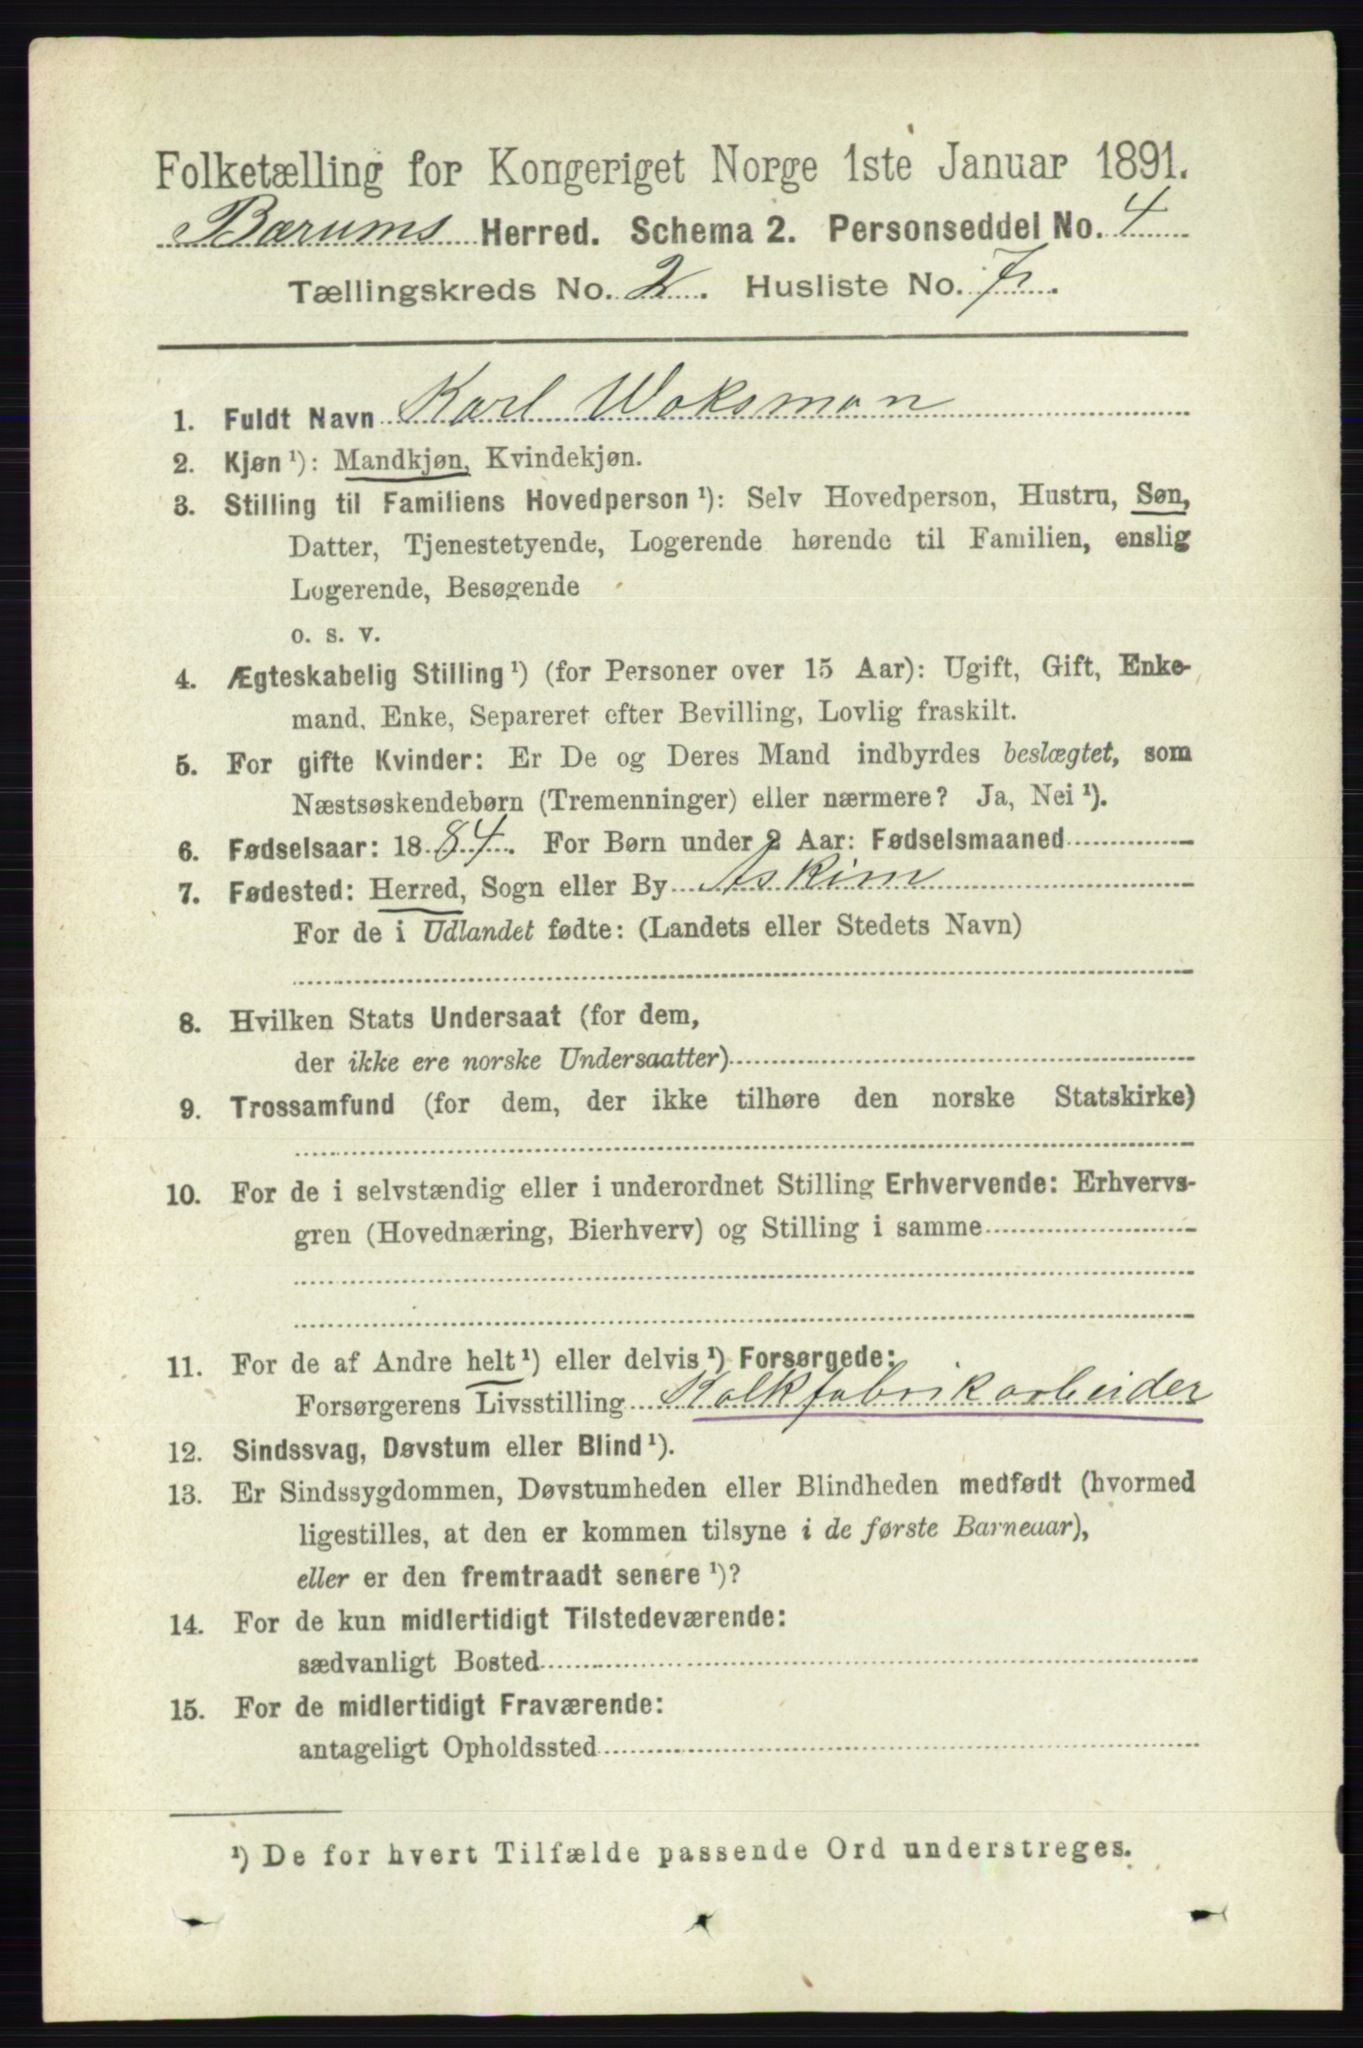 Folketælling for Kongeriget Norge 1ste Januar 1891.
Bærums Herred. Schema 2. Personseddel No. 4
Tællingskreds No. 2. Husliste No. 7.
1. Fuldt Navn Karl Woksman
2. Kjøn ¹): Mandkjøn, Kvindekjøn.
3. Stilling til Familiens Hovedperson ¹): Selv Hovedperson, Hustru, Søn,
Datter, Tjenestetyende, Logerende hørende til Familien, enslig
Logerende, Besøgende
o. s. v.
4. Ægteskabelig Stilling ¹) (for Personer over 15 Aar): Ugift, Gift, Enke-
mand, Enke, Separeret efter Bevilling, Lovlig fraskilt.
5. For gifte Kvinder: Er De og Deres Mand indbyrdes beslægtet, som
Næstsøskendebørn (Tremenninger) eller nærmere? Ja, Nei ¹).
6. Fødselsaar: 1884. For Børn under 2 Aar: Fødselsmaaned
7. Fødested: Herred, Sogn eller By Askim
For de i Udlandet fødte: (Landets eller Stedets Navn)
8. Hvilken Stats Undersaat (for dem,
der ikke ere norske Undersaatter)
9. Trossamfund (for dem, der ikke tilhøre den norske Statskirke)
10. For de i selvstændig eller i underordnet Stilling Erhvervende: Erhvervs-
gren (Hovednæring, Bierhverv) og Stilling i samme
11. For de af Andre helt ¹) eller delvis ¹) Forsørgede:
Forsørgerens Livsstilling Kalkfabrikarbeider
12. Sindssvag, Døvstum eller Blind ¹).
13. Er Sindssygdommen, Døvstumheden eller Blindheden medfødt (hvormed
ligestilles, at den er kommen tilsyne i de første Barneaar),
eller er den fremtraadt senere ¹)?
14. For de kun midlertidigt Tilstedeværende:
sædvanligt Bosted
15. For de midlertidigt Fraværende:
antageligt Opholdssted
¹) De for hvert Tilfælde passende Ord understreges.